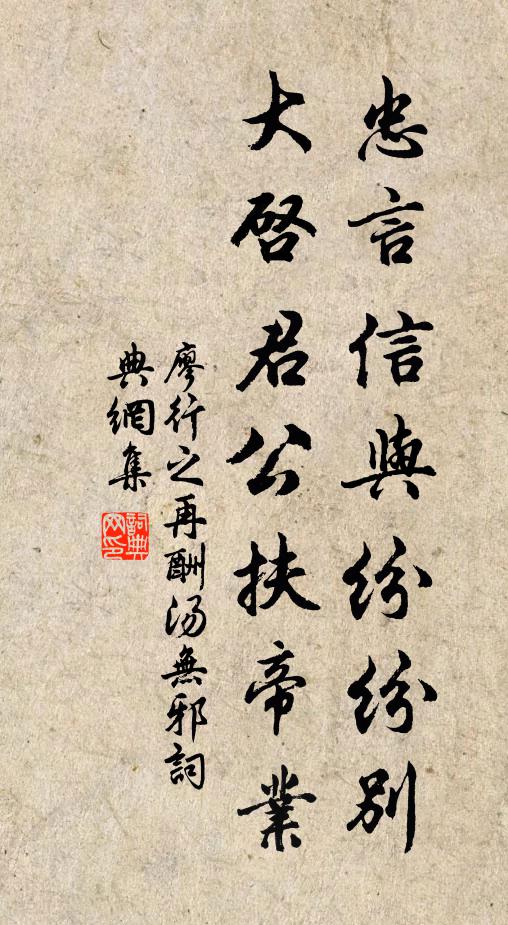 忠言信與紛紛別
大啓君公扶帝業
廖行之再酬汤無邪詞
典網集
詞典网印